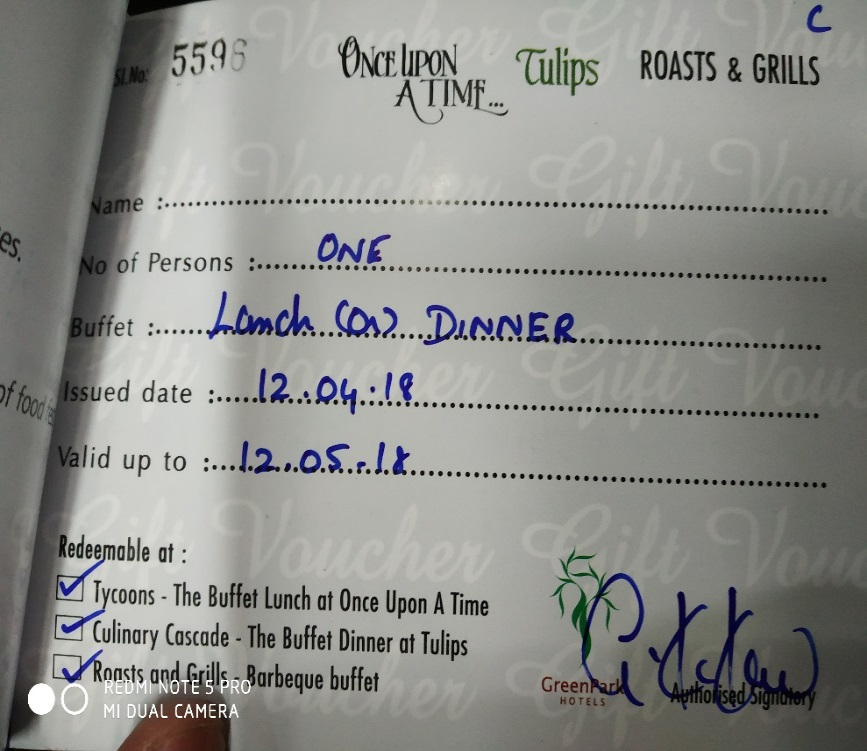 C
Sl.No: 5596 ONCE UPON A TIME... Tulips ROASTS & GRILLS
Name :
es.
No of Persons : ONE
Buffet : Lunch (or) DINNER
of food
Issued date : 12.04.18
Valid up to : 12.05.18
Redeemable at :
Tycoons - The Buffet Lunch at Once Upon A Time
Culinary Cascade - The Buffet Dinner at Tulips
Roasts and Grills - Barbeque buffet
GreenPark
HOTELS
Authorised Signatory
REDMI NOTE 5 PRO
MI DUAL CAMERA
Gift Voucher